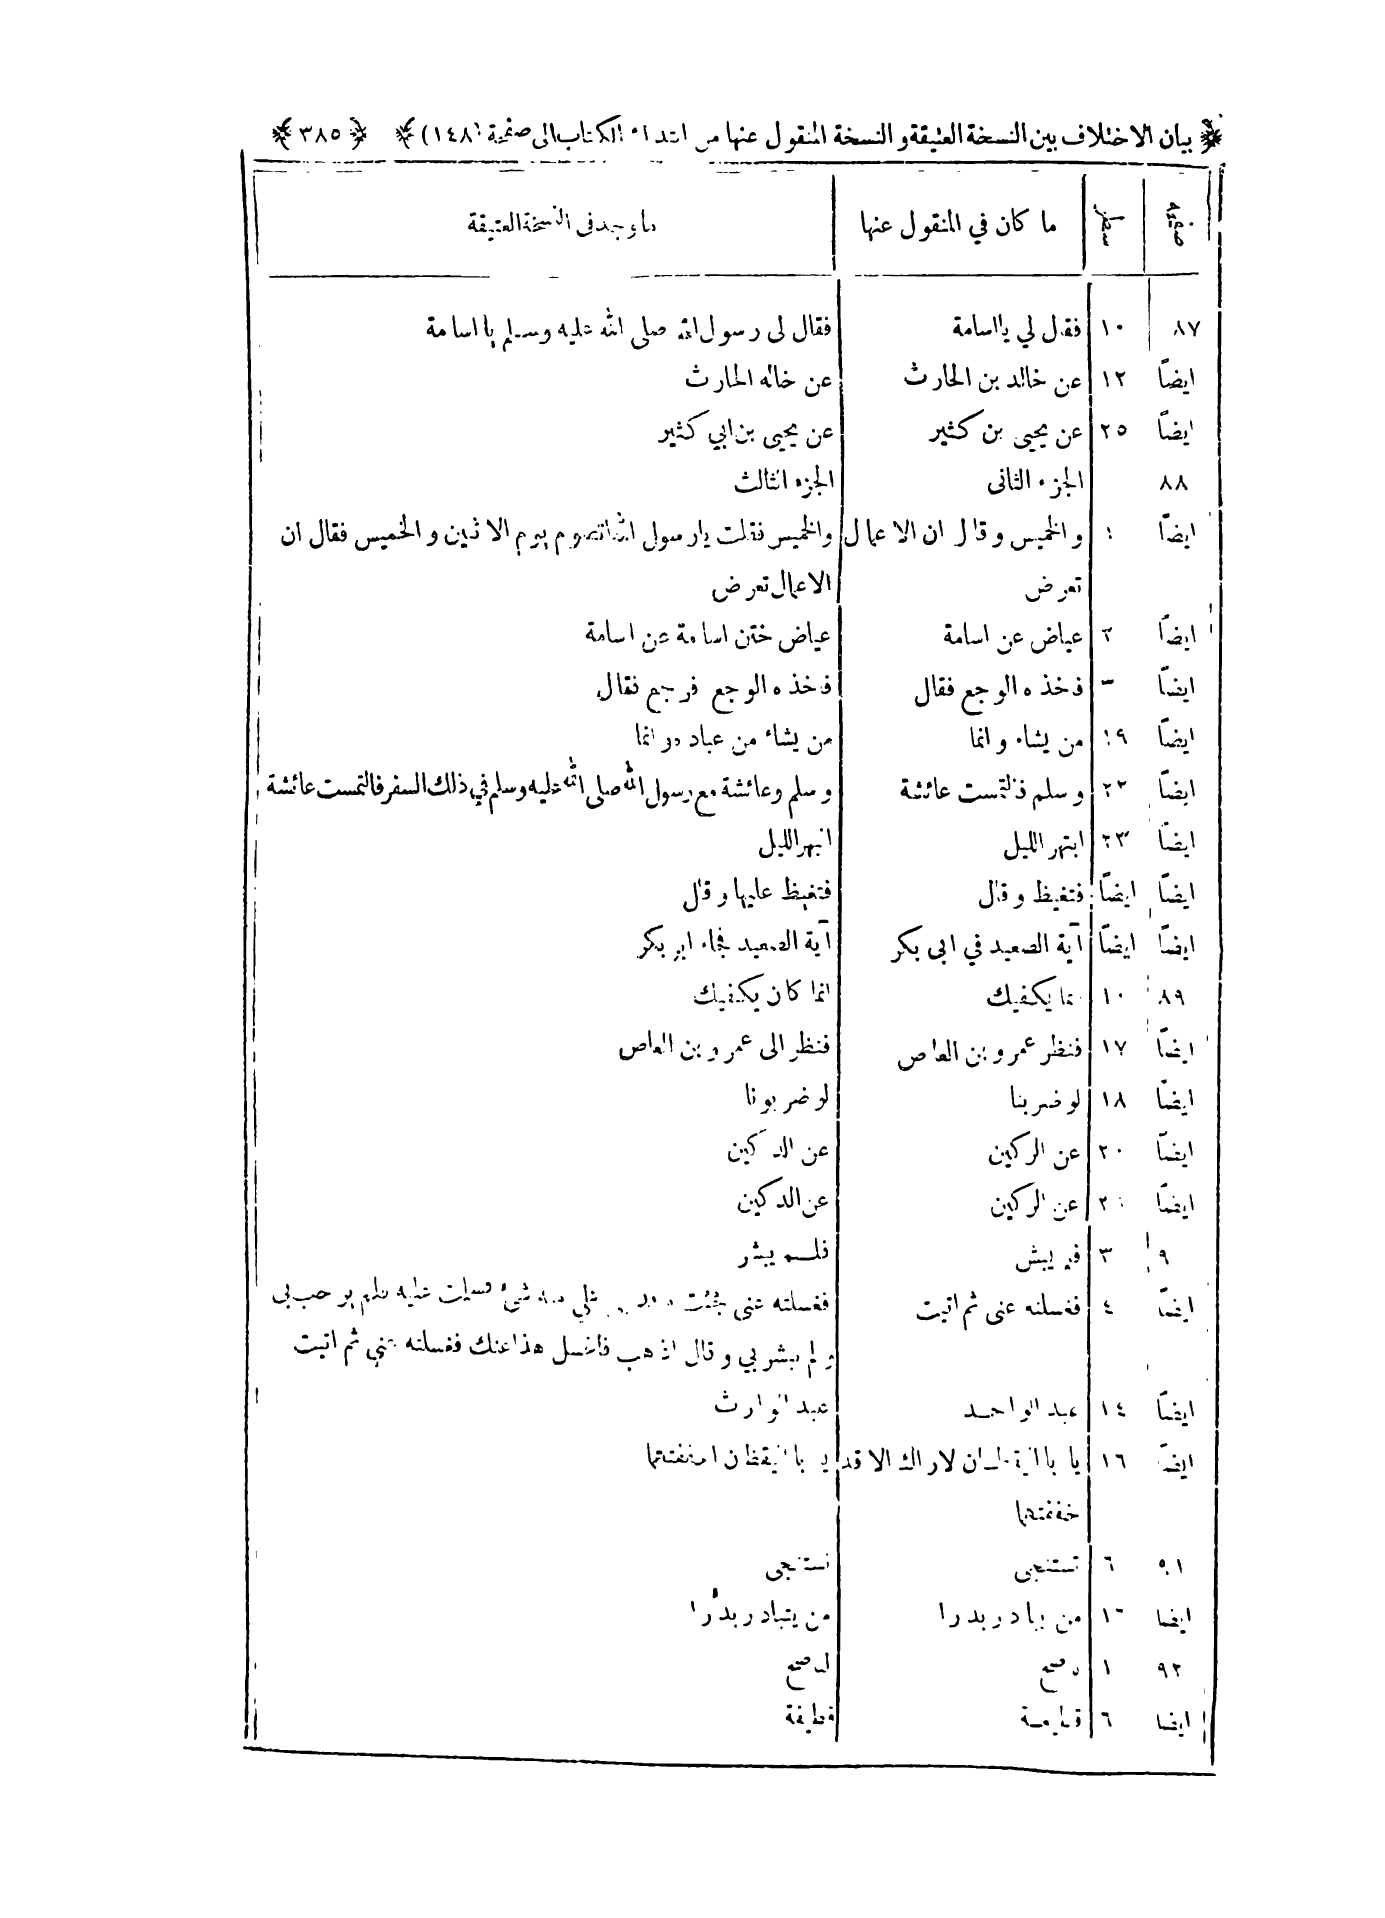 ﴿ بيان الاختلاف بين النسخة العتيقة و النسخة المنقول عنها من ابتداء الكتاب الى صفحة (١٤٨) ﴾ ﴿ ٣٨٥ ﴾
صفحه سطر ما كان في المنقول عنها ما وجد فى النسخة العتيقة
٨٧ ١٠ فقال لي يا اسامة فقال لى رسول الله صلى الله عليه وسلم يا اسامة
ايضاً ١٢ عن خالد بن الحارث عن خاله الحارث
ايضاً ٢٥ عن يحيى بن كثير عن يحيى بن ابي كثير
٨٨ الجزء الثانى الجزء الثالث
ايضاً ١ و الخميس و قال ان الاعمال والخميس فقلت يا رسول الله تصوم يوم الاثنين و الخميس فقال ان
تعرض الاعمال تعرض
ايضاً ٢ عياض عن اسامة عياض ختن اسامة عن اسامة
ايضاً ٣ فاخذه الوجع فقال فاخذه الوجع فرجع فقال
ايضاً ١٩ من يشاء و انما من يشاء من عباده و انما
ايضاً ٢٢ و سلم فالتمست عائشة و سلم وعائشة مع رسول الله صلى الله عليه وسلم في ذلك السفر فالتمست عائشة
ايضاً ٢٣ ابتهر الليل انبهر الليل
ايضاً ايضاً فتغيظ و قال فتغيظ عليها و قال
ايضاً ايضاً آية الصعيد في ابى بكر آية الصعيد فجاء ابو بكر
٨٩ ١٠ انما يكفيك انما كان يكفيك
ايضاً ١٧ فنظر عمرو بن العاص فنظر الى عمرو بن العاص
ايضاً ١٨ لو ضربنا لو ضربونا
ايضاً ٢٠ عن الركين عن الدكين
ايضاً ٢١ عن الركين عن الدكين
٩ ٣ فلم يبش فلم يبشر
ايضاً ٤ فغسلته عنى ثم اتيت فغسلته عنى فجئت و قد على منه شئ فسلمت عليه فلم يرحب بى
و لم يبشر بي و قال اذهب فاغسل هذا عنك فغسلته عني ثم اتيت
ايضاً ١٤ عبد الواحد عبد الوارث
ايضاً ١٦ يا با اليقظان لا اراك الا قد يا با اليقظان
خففتهما
٩١ ٦ تستنجى نستنجى
ايضا ١٦ من يبادر بدرا من يتبادر بدرا
٩٢ ١
ايضا ٦ قطيفة